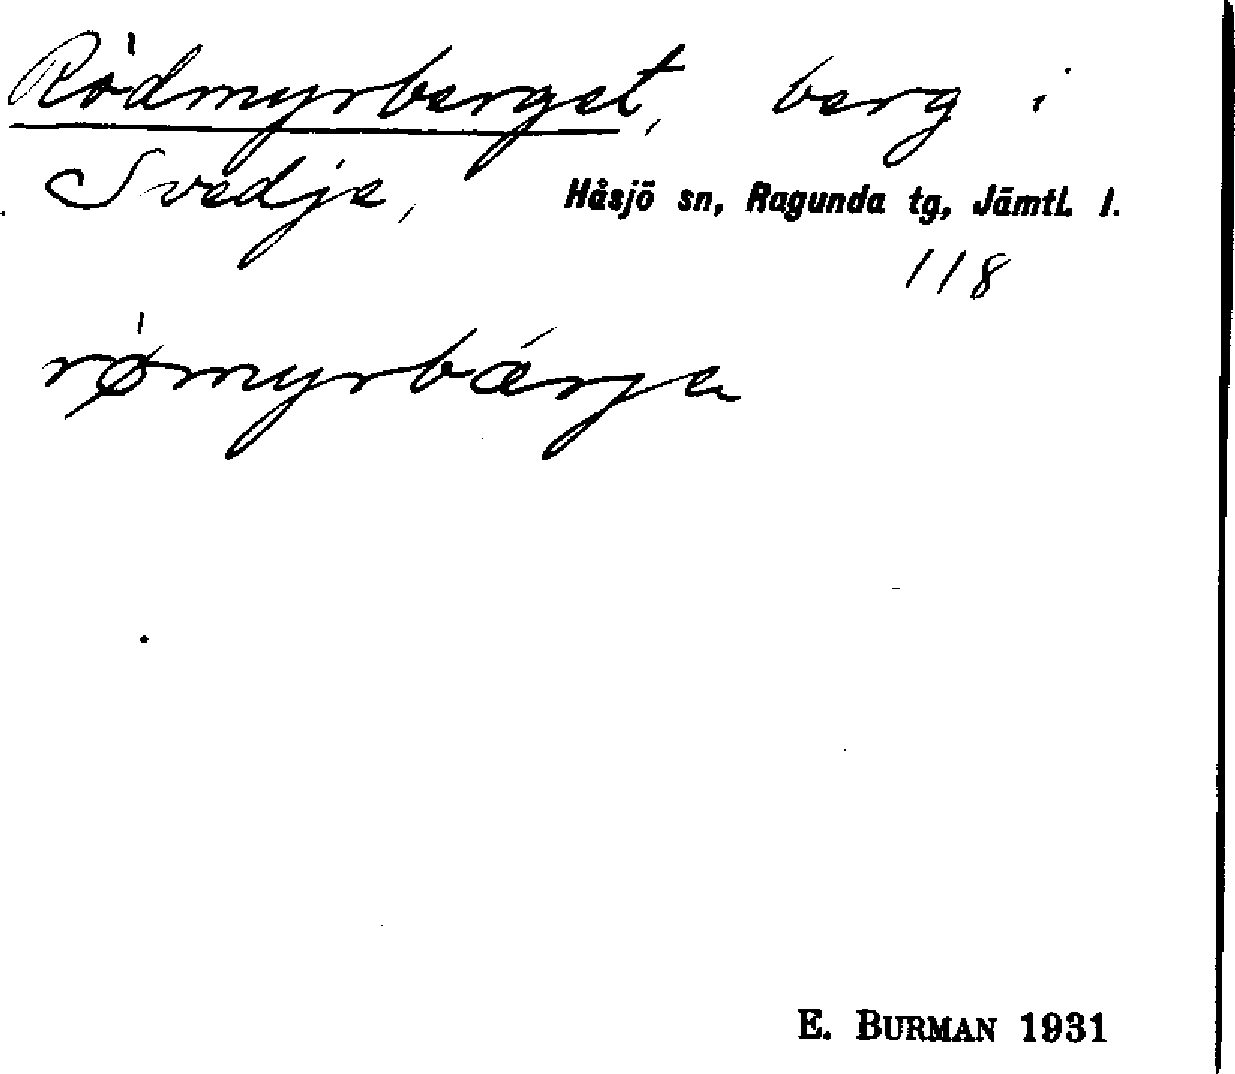 Rödmyrberget, berg i
Svedje, Håsjö sn, Ragunda tg, Jämtl. l.
118
rømyrbærje
E. BURMAN 1931